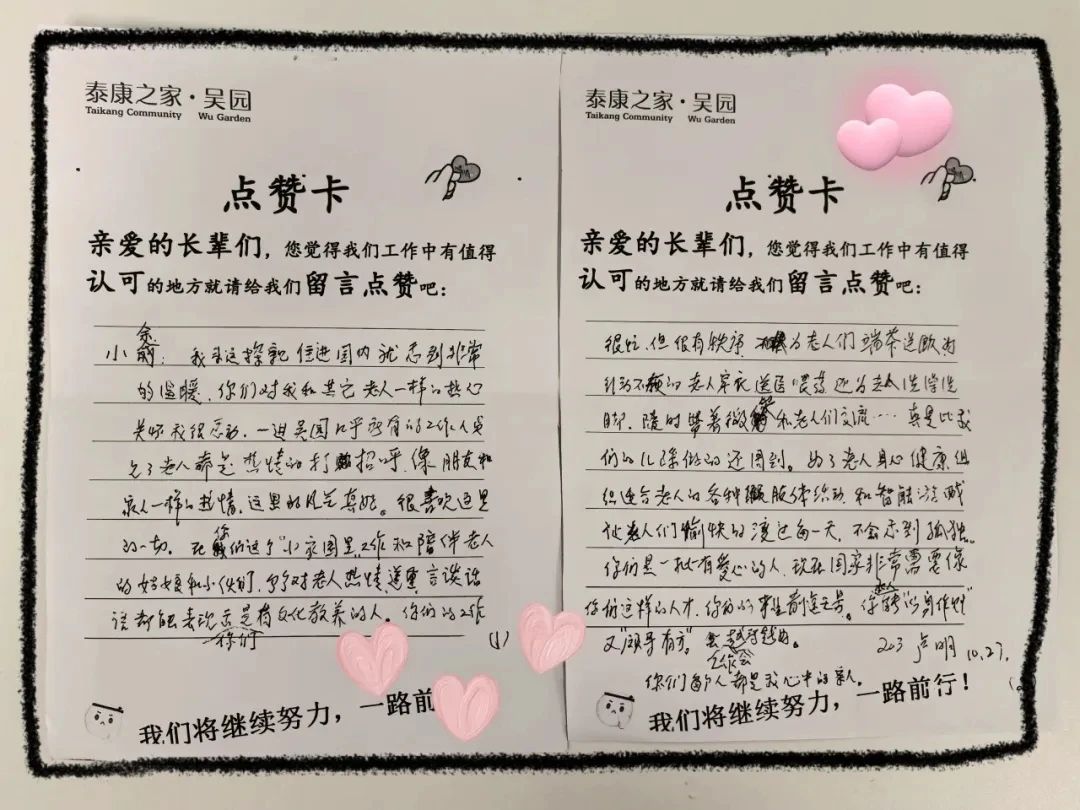 泰康之家·吴园
Taikang Community Wu Garden
点赞卡
亲爱的长辈们，您觉得我们工作中有值得
认可的地方就请给我们留言点赞吧：
余
小 ： 我 这探亲住进园内就感到非常
的温暖，你们对我和其它老人一样的热心
关怀我很感动，一进吴园几乎所有的工作人员
见了老人都是热情的打招呼像朋友和
家人一样的热情，这里的风气真好。很喜欢这里
你
的一切。在 们这个"小家园里工作和陪伴老人
的姑娘和小伙们，个个对老人热情 重言谈话
语都能表现 是有文化教养的人。你们的工作
你们
(1)
我们将继续努力，一路前
泰康之家·吴园
Taikang Community Wu Garden
点赞卡
亲爱的长辈们，您觉得我们工作中有值得
认可的地方就请给我们留言点赞吧：
很忙，但很有秩序， 为老人们端茶送饭为
行动不便的老人穿衣送医喂药还为老人洗澡洗
脚，随时带着微笑和老人们交流……真是比我
们的儿 做的还周到。为了老人身心健康组
织适合老人的各种 体活动和智能游戏
让老人们愉快的渡过每一天，不会感到孤独。
你们是一批有爱心的人，现在国家非常需要像
你们这样的人才，你们的 前 。你 "以身作则"
又"领导有方"。会越 越好。
工作会
203 卢明 10.27.
你们每个人都是我心中的亲人。
我们将继续努力，一路前行！